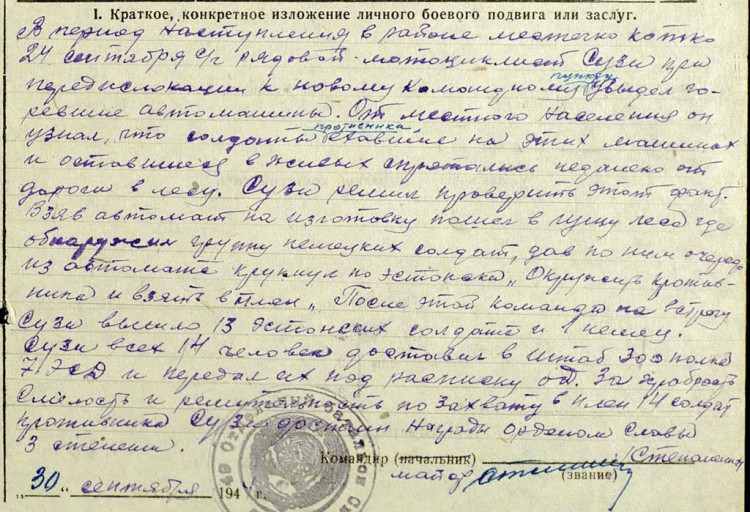 I. Краткое, конкретное изложение личного боевого подвига или заслуг.
В период наступления в районе местечко
24 сентября с/г рядовой - мотоциклист Сузи при
передислокации к новому Командному пункту увидел го-
ревшие автомашины. От местного населения он
узнал, что солдаты противника, ехавшие на этих машинах
и оставшиеся в живых спрятались недалеко от
дороги в лесу. Сузи решил проверить этот факт.
Взяв автомат на изготовку пошел в гущу леса где
обнаружил группу немецких солдат, дав по ним очередь
из автомата крикнул по эстонски „Окружить против-
ника и взять в плен„ После этой команды на встречу
Сузи вышло 13 эстонских солдат и 1 немец.
Сузи всех 14 человек доставил в штаб 300 полка
7 ЭСД и передал их под расписку. За храбрость
смелость и решительность по захвату в плен 14 солдат
противника Сузи достоин награды орденом Славы
3 степени.
Командир (начальник)
майор
(звание)
„30" сентября 194 г.